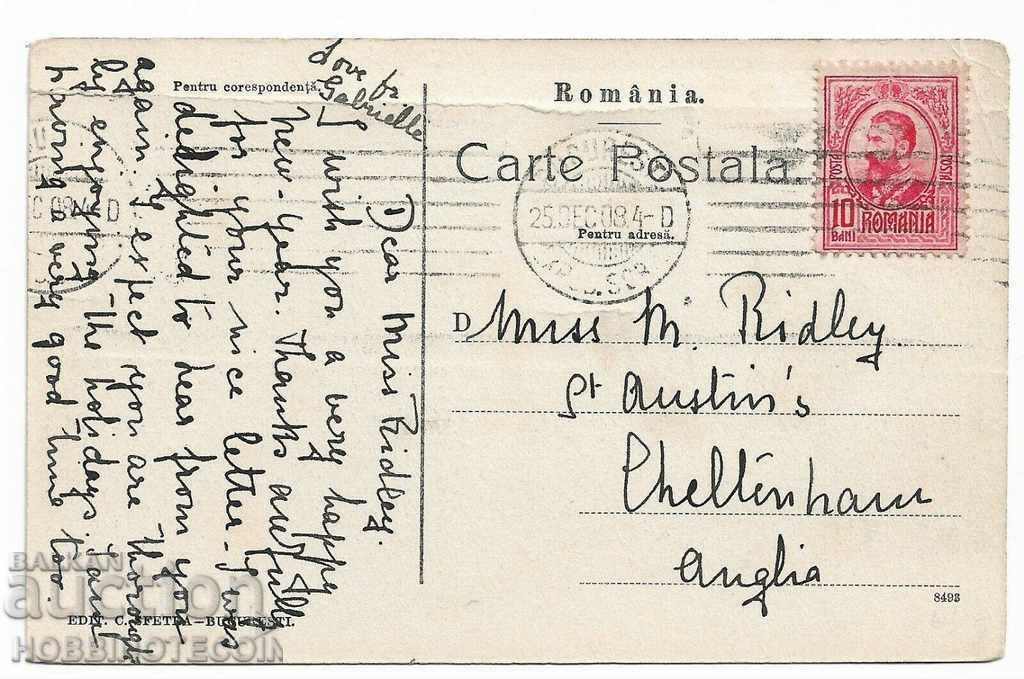 Pentru corespondență.
Love fr
Gabrielle
Dear Miss Ridley.
I wish you a very happy
new-year. Thanks awfully
for your nice letter. I was
delighted to hear from you
again. I expect you are thorough-
ly enjoying the holidays, and
having a very good time too.
EDIT. C. SFETEA—BUCUREȘTI.
România.
Carte Postala.
25.DEC 08.4-D
Pentru adresă.
POSTA
POSTA
10
BANI
ROMANIA
EC 08.4 D
D Miss M. Ridley.
St Austin's
Cheltenham
Anglia
8493
BALKAN
auction
HOBBIKOTECOIN